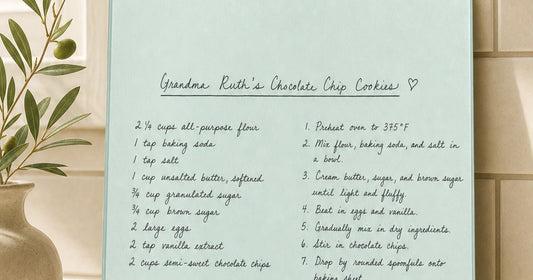 Grandma Ruth's Chocolate Chip Cookies ♡
2 ¼ cups all-purpose flour
1 tsp baking soda
1 tsp salt
1 cup unsalted butter, softened
¾ cup granulated sugar
¾ cup brown sugar
2 large eggs
2 tsp vanilla extract
2 cups semi-sweet chocolate chips
1. Preheat oven to 375°F
2. Mix flour, baking soda, and salt in
a bowl.
3. Cream butter, sugar, and brown sugar
until light and fluffy.
4. Beat in eggs and vanilla.
5. Gradually mix in dry ingredients.
6. Stir in chocolate chips.
7. Drop by rounded spoonfuls onto
baking sheet